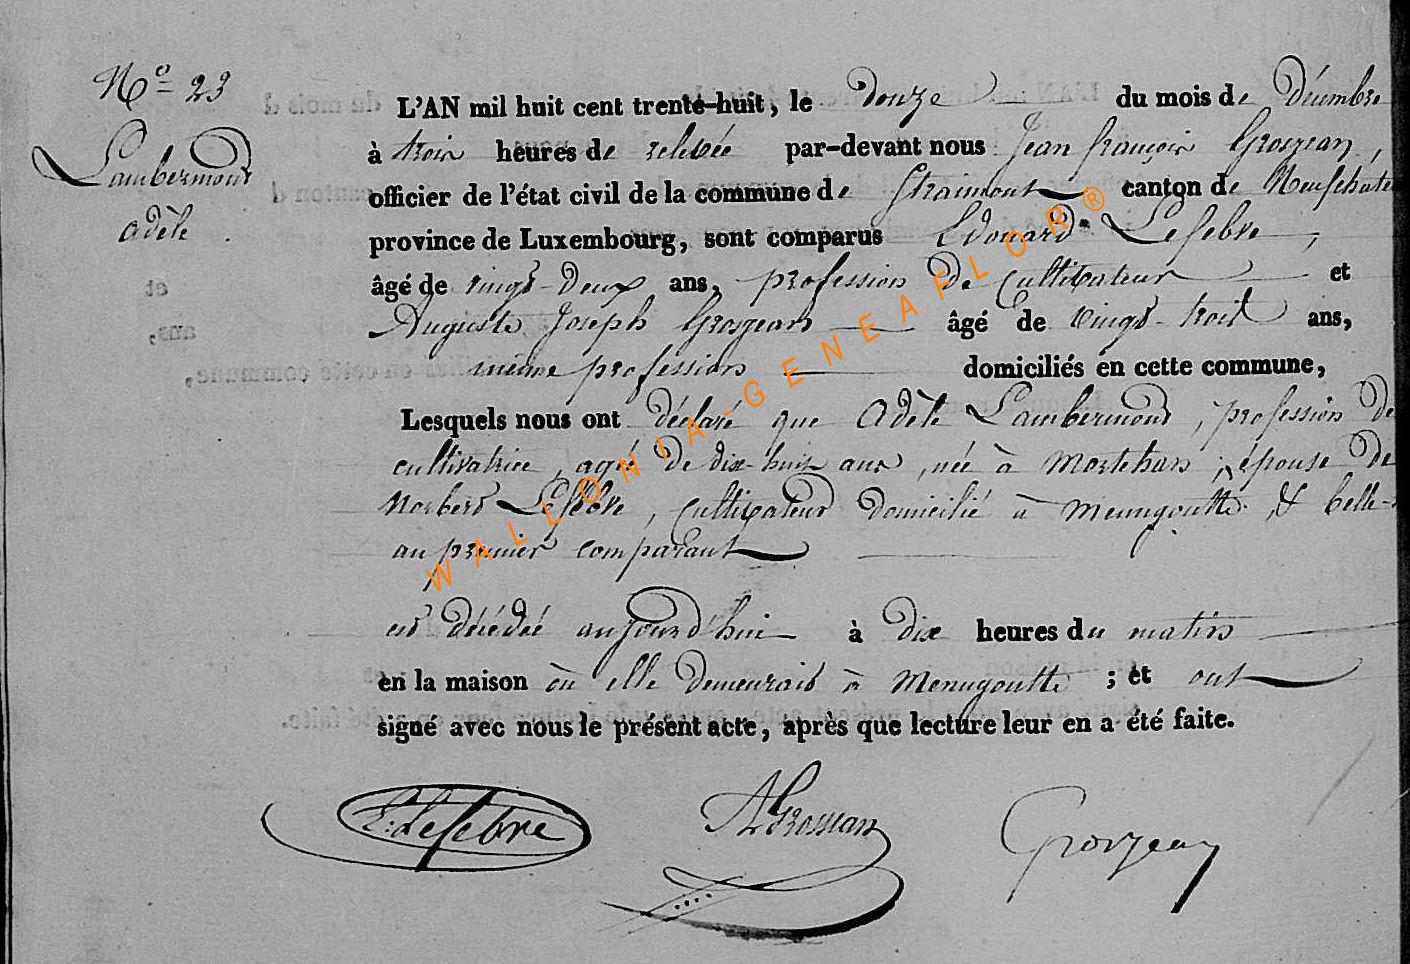 N° 23
Lambermont
Adèle
L'AN mil huit cent trente-huit, le douze du mois de Décembre
à trois heures de relevée par-devant nous Jean françois Grosjean,
officier de l'état civil de la commune de Straimont canton de Neufchate
province de Luxembourg, sont comparus Edouard Lefebre,
âgé de vingt-deux ans, profession de Cultivateur et
Auguste Joseph Grosjean âgé de vingt-trois ans,
même profession domiciliés en cette commune,
Lesquels nous ont déclaré que Adèle Lambermont, profession de
cultivatrice, agée de dix-huit ans, née à Mortehan, épouse de
Norbert Lefebre, Cultivateur domicilié à Menugoutte, & belle-
au premier comparant
est décédée aujourd'hui à dix heures du matin
en la maison où elle demeurait à Menugoutte ; et ont
signé avec nous le présent acte, après que lecture leur en a été faite.
E. Lefebre
A Grosjean
Grosjean
WALLONIA-GENEAFLOR®